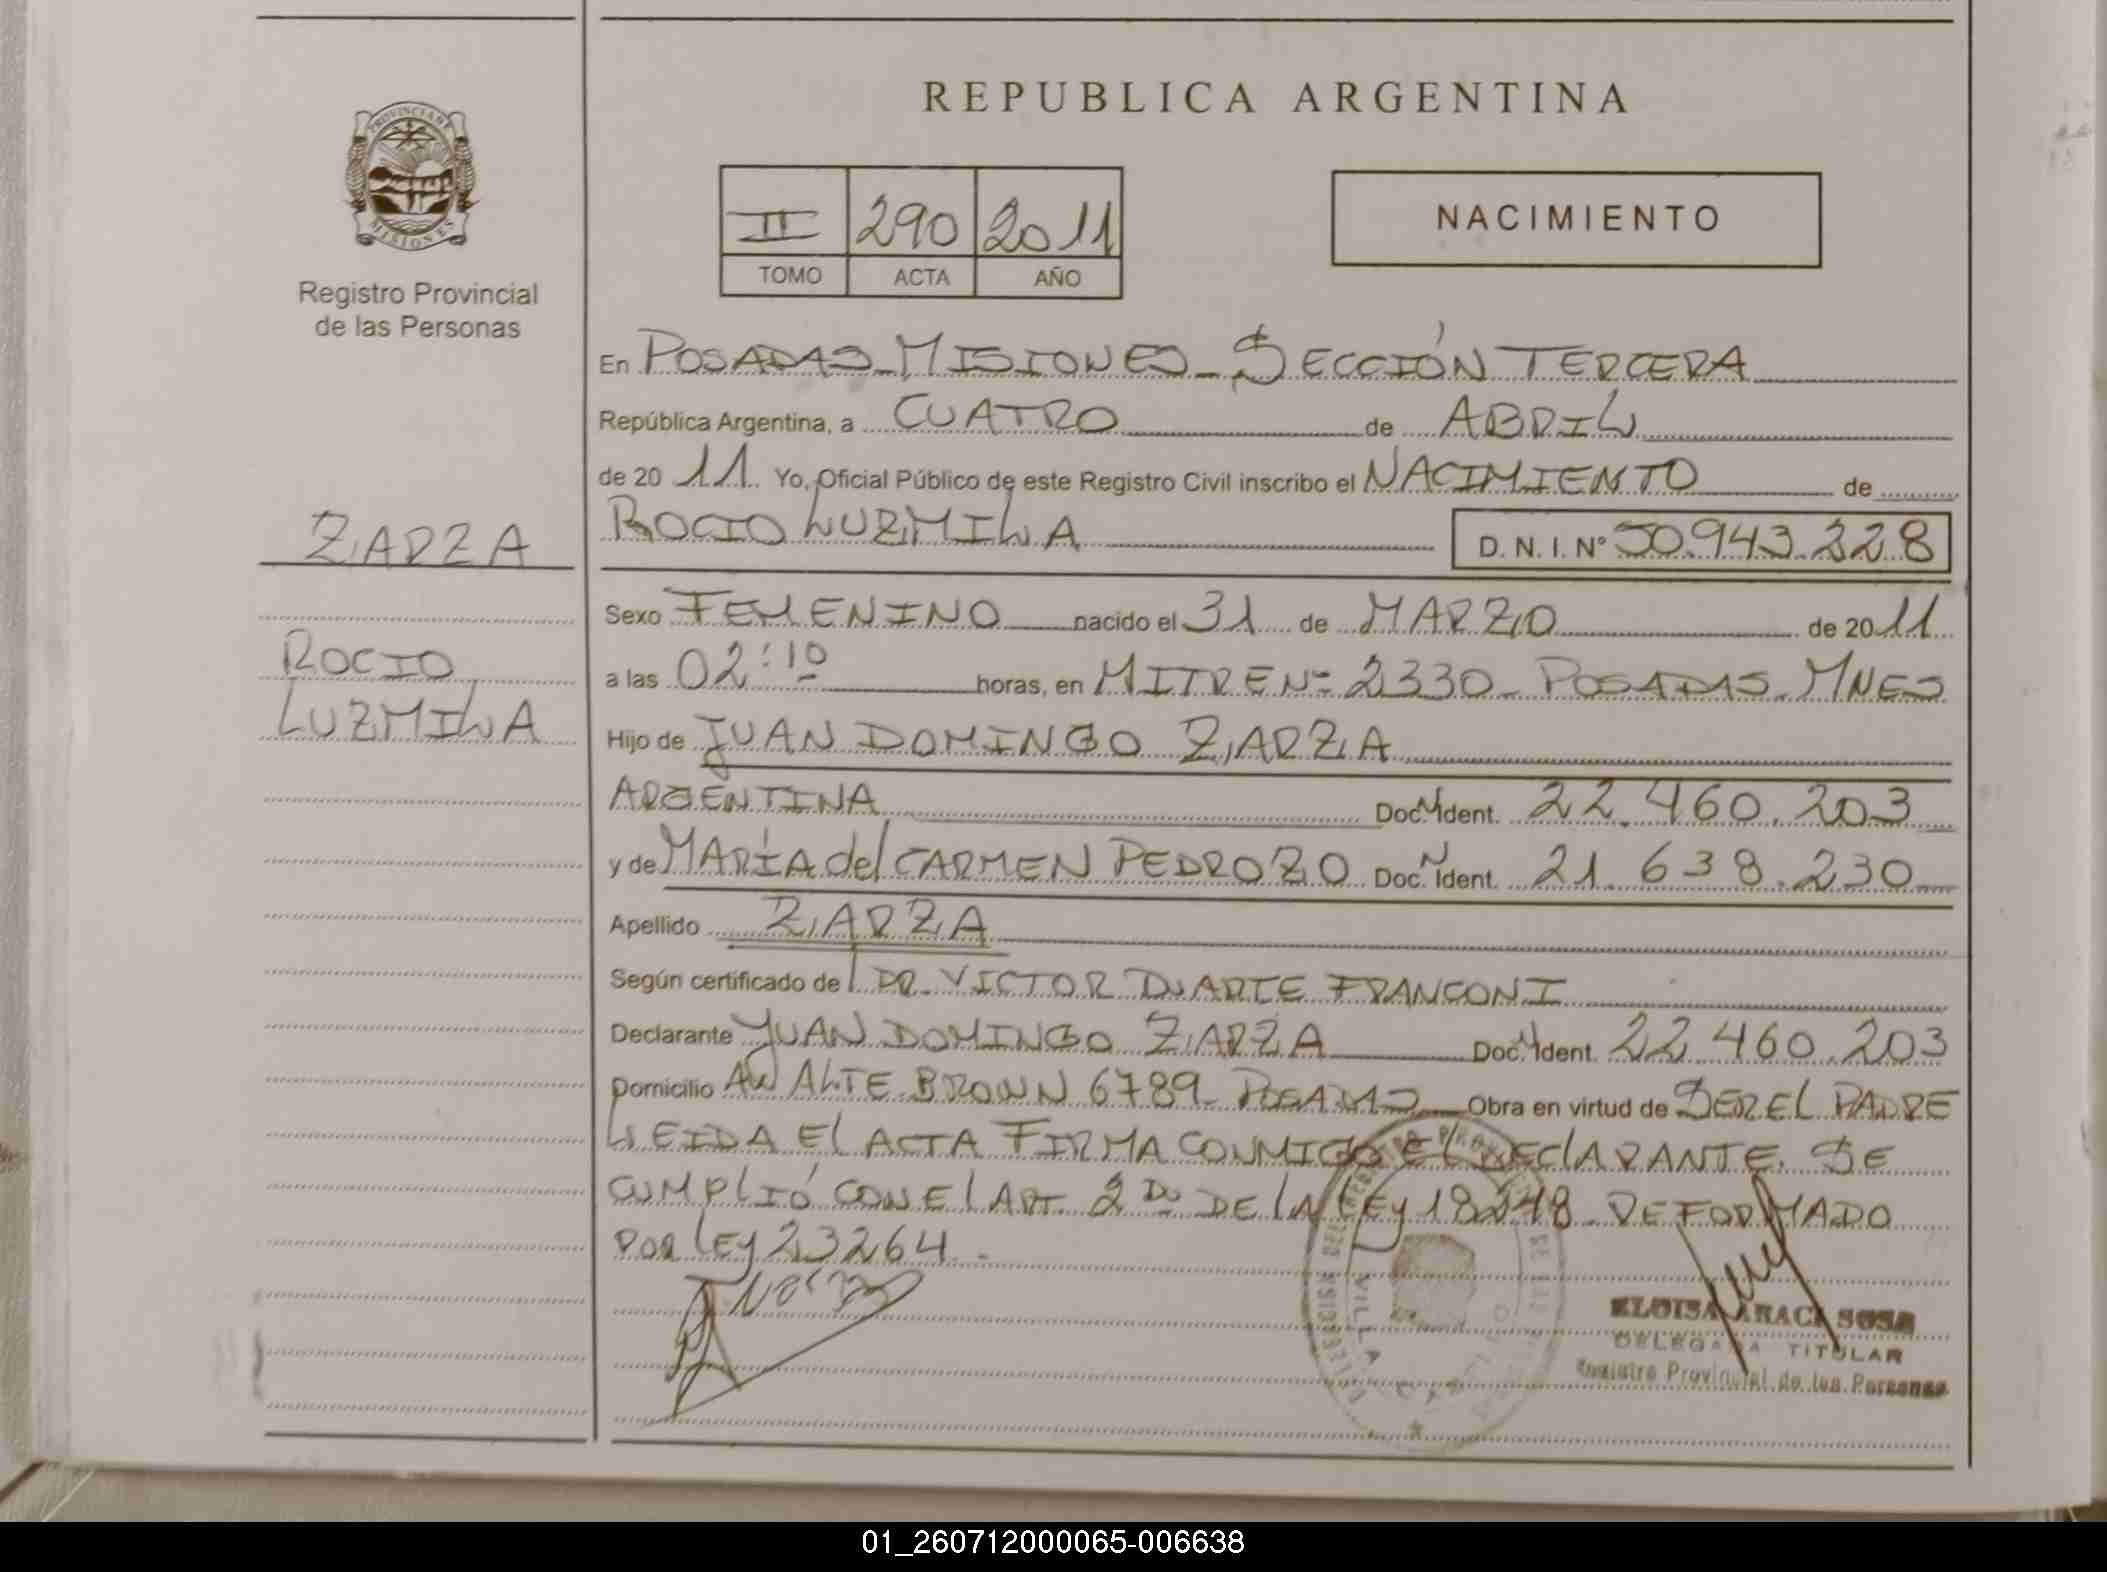 REPUBLICA ARGENTINA
PROVINCIA DE
MISIONES
Registro Provincial
de las Personas
II 290 2011
TOMO ACTA AÑO
NACIMIENTO
En POSADAS - MISIONES - SECCIÓN TERCERA
República Argentina, a CUATRO de ABRIL
de 20 11 Yo, Oficial Público de este Registro Civil inscribo el NACIMIENTO de
ZARZA
ROCIO LUZMILA D. N. I. Nº 50.943.228
Sexo FEMENINO nacido el 31 de MARZO de 20 11
ROCIO
LUZMILA
a las 02:10 horas, en MITRE Nº 2330 - POSADAS - MNES
Hijo de JUAN DOMINGO ZARZA
ARGENTINA Doc. N Ident. 22.460.203
y de MARÍA del CARMEN PEDROZO Doc. N Ident. 21.638.230
Apellido ZARZA
Según certificado de DR. VICTOR DUARTE FRANCONI
Declarante JUAN DOMINGO ZARZA Doc. N Ident. 22.460.203
Domicilio AV ALTE BROWN 6789 - POSADAS Obra en virtud de SER EL PADRE
LEIDA El ACTA FIRMA CONMIGO El DEClARANTE. SE
CUMPLIÓ CON El ART. 2do DE lA LEy 18248 REFORMADO
POR LEy 23264.-
ELOISA ARACI SOSA
DELEGADA TITULAR
Registro Provincial de las Personas
VILLA
01_260712000065-006638